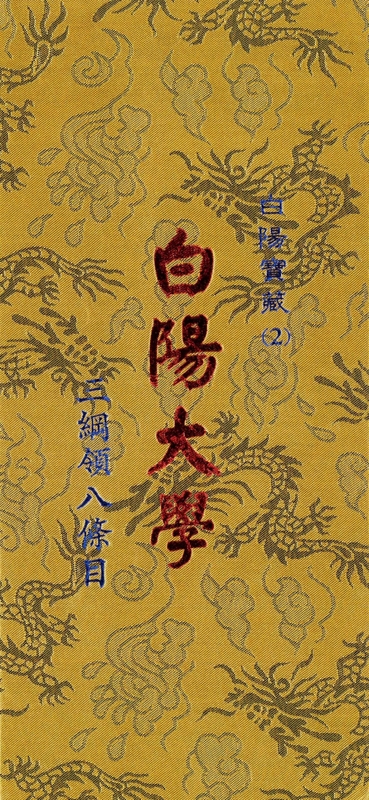 白陽寶藏(2)
白陽大學
三綱領八條目